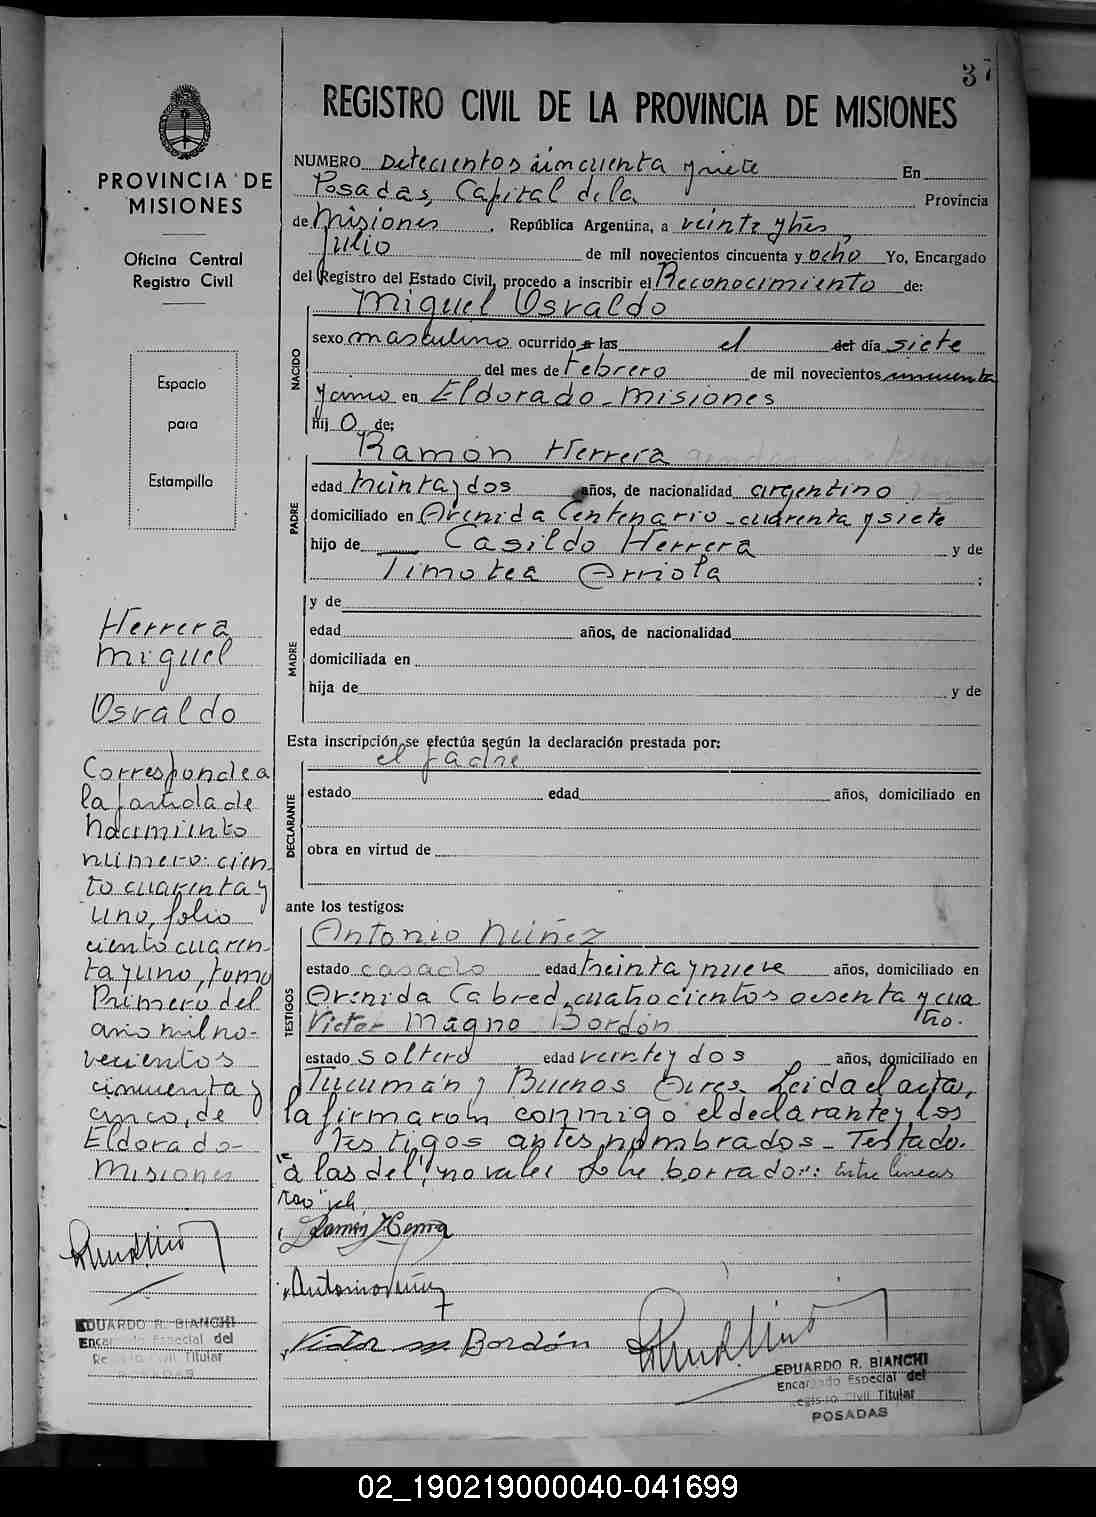 37
REGISTRO CIVIL DE LA PROVINCIA DE MISIONES
PROVINCIA DE
MISIONES
Oficina Central
Registro Civil
Espacio
para
Estampilla
NUMERO Setecientos cincuenta y siete En
Posadas, Capital de la Provincia
de Misiones, República Argentina, a veinte y tres,
Julio de mil novecientos cincuenta y ocho Yo, Encargado
del Registro del Estado Civil, procedo a inscribir el Reconocimiento de:
Miguel Osvaldo
NACIDO
sexo masculino ocurrido a las el del día siete
del mes de Febrero de mil novecientos cincuenta
y cinco en Eldorado - Misiones
hijo de;
PADRE
Ramón Herrera
edad treinta y dos años, de nacionalidad argentino
domiciliado en Avenida Centenario - cuarenta y siete
hijo de Casildo Herrera y de
Timotea Arriola ;
MADRE
y de
edad años, de nacionalidad
domiciliada en
hija de y de
Esta inscripción se efectúa según la declaración prestada por:
el padre
DECLARANTE
estado edad años, domiciliado en
obra en virtud de
ante los testigos:
TESTIGOS
Antonio Núñez
estado casado edad treinta y nueve años, domiciliado en
Avenida Cabred, cuatrocientos sesenta y cua
tro.
Victor Magno Bordón
estado soltero edad veinte y dos años, domiciliado en
Tucumán y Buenos Aires. Leida el acta,
la firmaron conmigo el declarante y los
testigos antes nombrados - Testado.
"a las del", no vale: Sobre borrado: Entre lineas
Ramón Herrera
Antonio Núñez
Victor M. Bordón
EDUARDO R. BIANCHI
Encargado Especial del
Registro Civil Titular
POSADAS
Herrera
Miguel
Osvaldo
Corresponde a
la partida de
Nacimiento
número: cien
to cuarenta y
uno, folio
ciento cuaren-
ta y uno, tomo
Primero del
año mil no-
vecientos
cincuenta y
cinco, de
Eldorado -
Misiones
EDUARDO R. BIANCHI
Encargado Especial del
Registro Civil Titular
POSADAS
02_190219000040-041699